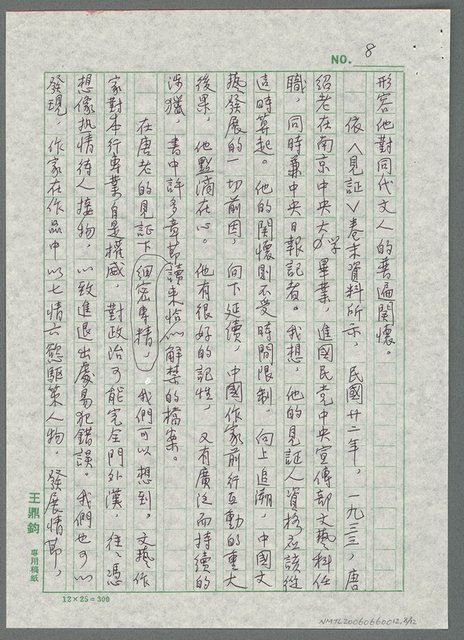 NO. 8
形容他對同代文人的普遍關懷。
依〈見証〉卷末資料所示，民國廿二年，一九三三，唐
紹老在南京中央大學畢業，進國民党中央宣傳部文藝科任
職，同時兼中央日報記者。我想，他的見証人資格应該從
這時算起。他的關懷則不受時間限制，向上追溯，中國文
藝發展的一切前因，向下延僨，中國作家前行互動的重大
後果，他點滴在心。他有很好的記性，又有廣泛而持續的
涉獵，書中許多章節讀來恰似解禁的檔案。
在唐老的見証下細密專精，我們可以想到。文藝作
家對本行專業自是權威，對政治可能完全門外漢，往、憑
想像热情待人接物，以致進退出處易犯錯誤。我們也可以
發現，作家在作品中以七情六慾驅策人物，發展情節，
王鼎鈞 專用稿紙
12×25=300
NMTL20060660012.8/12